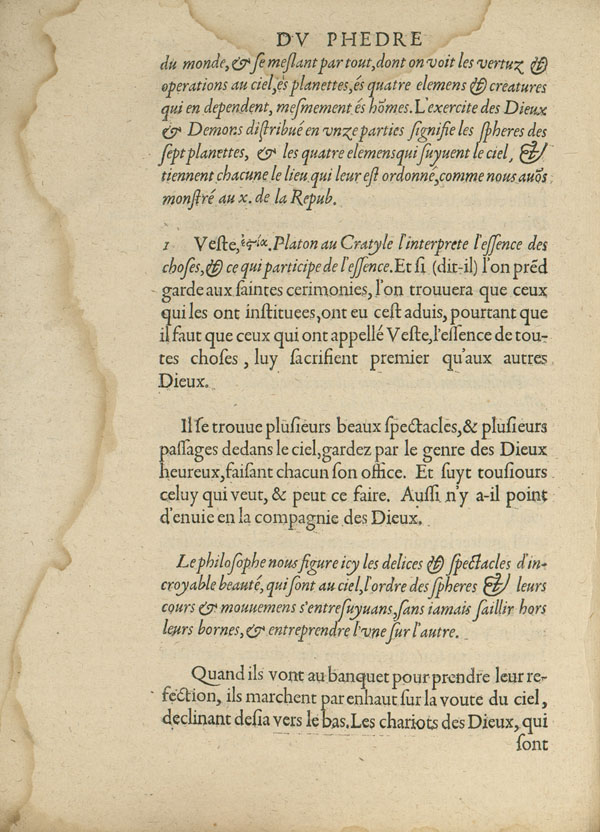 DV PHEDRE
du monde, & se meslant par tout, dont on voit les vertuz &
operations au ciel, és planettes, és quatre elemens & creatures
qui en dependent, mesmement és hõmes. L'exercite des Dieux
& Demons distribué en vnze parties signifie les spheres des
sept planettes, & les quatre elemens qui suyuent le ciel, &
tiennent chacune le lieu qui leur est ordonné, comme nous auõs
monstré au x. de la Repub.
1 Veste, ἑστία. Platon au Cratyle l'interprete l'essence des
choses, & ce qui participe de l'essence. Et si (dit-il) l'on prẽd
garde aux saintes cerimonies, l'on trouuera que ceux
qui les ont instituees, ont eu cest aduis, pourtant que
il faut que ceux qui ont appellé Veste, l'essence de tou-
tes choses, luy sacrifient premier qu'aux autres
Dieux.
Il se trouue plusieurs beaux spectacles, & plusieurs
passages dedans le ciel, gardez par le genre des Dieux
heureux, faisant chacun son office. Et suyt tousiours
celuy qui veut, & peut ce faire. Aussi n'y a-il point
d'enuie en la compagnie des Dieux.
Le philosophe nous figure icy les delices & spectacles d'in-
croyable beauté, qui sont au ciel, l'ordre des spheres & leurs
cours & mouuemens s'entresuyuans, sans iamais saillir hors
leurs bornes, & entreprendre l'vne sur l'autre.
Quand ils vont au banquet pour prendre leur re-
fection, ils marchent par enhaut sur la voute du ciel,
declinant desia vers le bas. Les chariots des Dieux, qui
sont